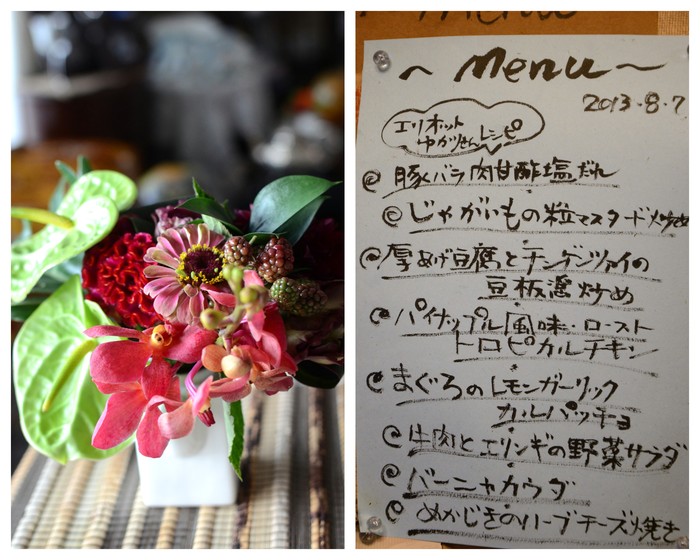 ~ Menu ~
2013.8.7
エリオット
ゆかりさんレシピ
豚バラ肉甘酢塩だれ
じゃがいもの粒マスタード炒め
厚あげ豆腐とチンゲンツァイの
豆板醤炒め
パイナップル風味・ロースト
トロピカルチキン
まぐろのレモンガーリック
カルパッチョ
牛肉とエリンギの野菜サラダ
バーニャカウダ
めかじきのハーブチーズ焼き